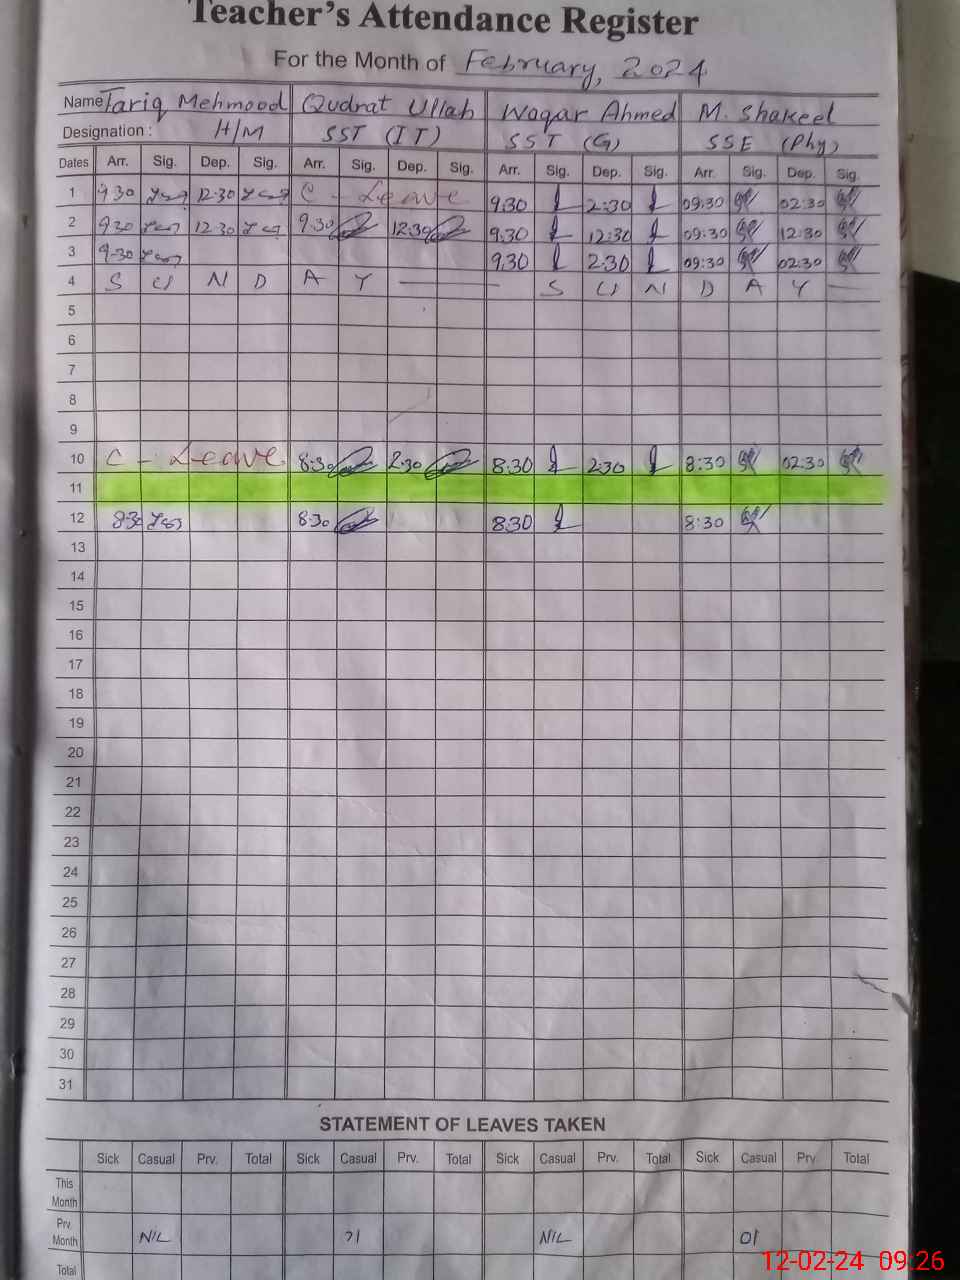 Teacher's Attendance Register
For the Month of February, 2024
Name Tariq Mehmood Qudrat Ullah Waqar Ahmed M. Shakeel
Designation : H/M SST (IT) SST (G) SSE (Phy)
Dates Arr. Sig. Dep. Sig. Arr. Sig. Dep. Sig. Arr. Sig. Dep. Sig. Arr. Sig. Dep. Sig.
1 9:30 12:30 C - Leave 9:30 2:30 09:30 02:30
2 9:30 12:30 9:30 12:30 9:30 12:30 09:30 12:30
3 9:30 9:30 2:30 09:30 02:30
4 S U N D A Y S U N D A Y
5
6
7
8
9
10 C - Leave 8:30 2:30 8:30 2:30 8:30 02:30
11
12 8:30 8:30 8:30 8:30
13
14
15
16
17
18
19
20
21
22
23
24
25
26
27
28
29
30
31
STATEMENT OF LEAVES TAKEN
Sick Casual Prv. Total Sick Casual Prv. Total Sick Casual Prv. Total Sick Casual Prv. Total
This Month
Prv. Month NIL 01 NIL 01
Total
12-02-24 09:26